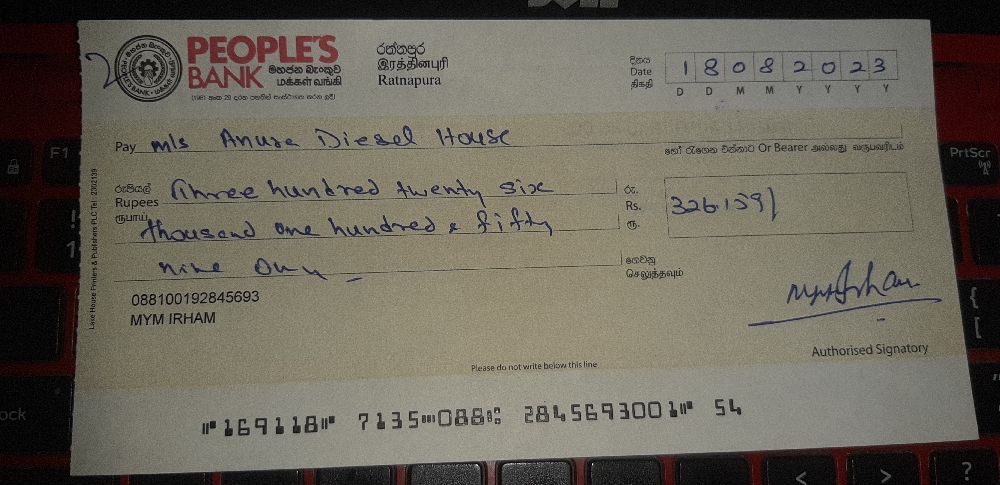 PEOPLE'S BANK
මහජන බැංකුව
மக்கள் வங்கி
රත්නපුර
இரத்தினபுரி
Ratnapura
දිනය
Date
திகதி
1 8 0 8 2 0 2 3
D D M M Y Y Y Y
Pay M/s Anura Diesel House
හෝ රැගෙන එන්නාට Or Bearer அல்லது வருபவரிடம்
රුපියල්
Rupees Three hundred twenty six
ரூபாய்
thousand one hundred & fifty
nine Only
රු.
Rs. 326.159/
ரூ.
ගෙවනු
செலுத்தவும்
088100192845693
MYM IRHAM
Authorised Signatory
Please do not write below this line
⑈169118⑈ 7135⑉088⑆ 2845693001⑈ 54
Lake House Printers & Publishers PLC Tel : 2302139
F1
PrtScr
ock
{
[
<
>
?